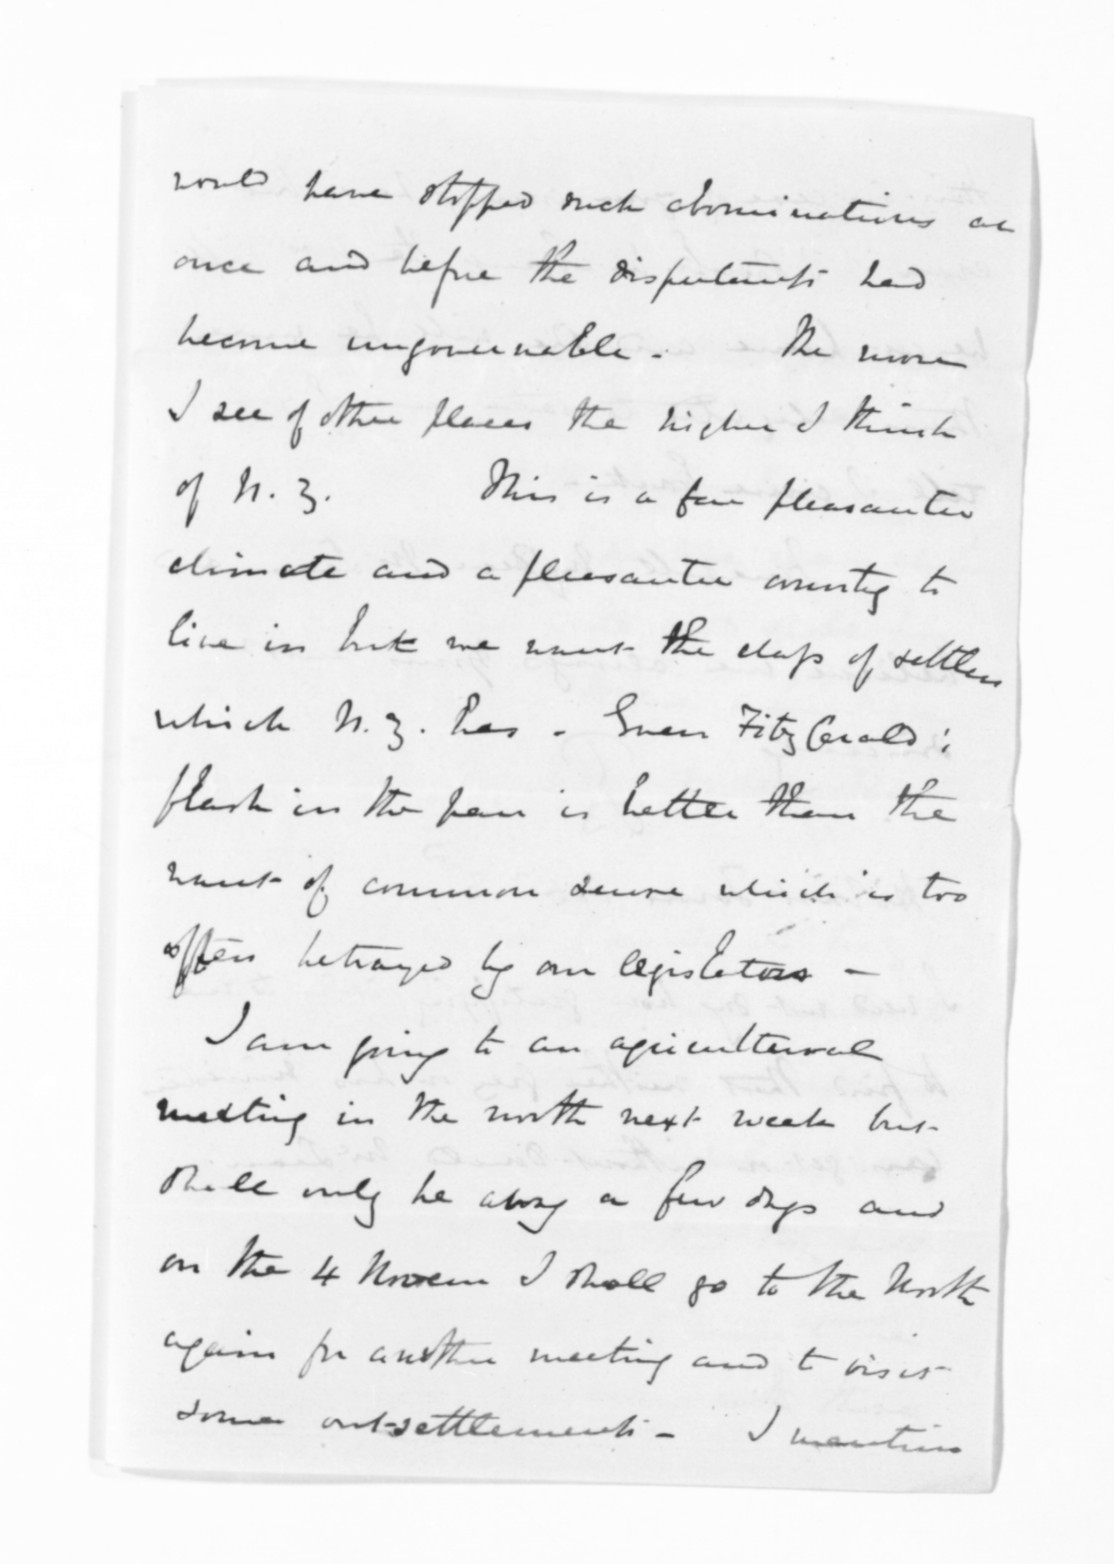 would have stopped such abominations at
once and before the disputants had
become ungovernable. The more
I see of other places the higher I think
of N.Z. This is a far pleasanter
climate and a pleasanter country to
live in but we want the class of settlers
which N.Z. has. Even FitzGerald's
flash in the pan is better than the
want of common sense which is too
often betrayed by our legislators —
I am going to an agricultural
meeting in the north next week but
shall only be away a few days and
on the 4 I shall go to the North
again for another meeting and to visit
some out-settlements — I mention